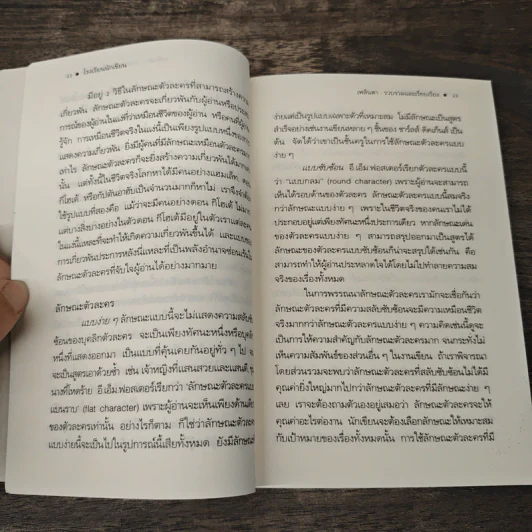 ๒๖ • โรงเรียนนักเขียน
มีอยู่ ๒ วิธีในลักษณะตัวละครที่สามารถสร้างความ
เกี่ยวพัน ลักษณะตัวละครจะเกี่ยวพันกับผู้อ่านหรือประสบ
การณ์ของผู้อ่านในแง่ที่ว่าเหมือนชีวิตของผู้อ่าน
รู้จัก การเหมือนชีวิตจริงในแง่นี้เป็นเพียงรูปแบบหนึ่งของการ
แสดงความเกี่ยวพัน ยิ่งมีผู้คนที่มีลักษณะเหมือนตัวละคร
เท่าไร ลักษณะตัวละครก็จะยิ่งสร้างความเกี่ยวพันได้มาก
นั้น แต่ทั้งนี้ในชีวิตจริงโลกหาได้มีคนอย่างแฮมเล็ต
กิโฮเต้ หรือกัปตันอาฮับเป็นจำนวนมากก็หาไม่ เราจึงจำต้อง
ใช้รูปแบบที่สองคือ แม้ว่าจะมีคนอย่างดอน กิโฮเต้ ไม่มาก
แต่บางสิ่งบางอย่างในตัวดอน กิโฮเต้มีอยู่ในตัวเราแต่ละคน
ในแง่นี้แหละที่จะทำให้เกิดความเกี่ยวพันขึ้นได้ และแบบของ
การเกี่ยวพันประการหลังนี่แหละที่เป็นพลังอำนาจซ่อนเร้นใน
ลักษณะตัวละครที่จับใจผู้อ่านได้อย่างมากมาย
ลักษณะตัวละคร
แบบง่าย ๆ ลักษณะแบบนี้จะไม่แสดงความสลับซับ
ซ้อนของบุคลิกตัวละคร จะเป็นเพียงทัศนะหนึ่งหรือบุคลิก
หนึ่งที่แสดงออกมา เป็นแบบที่คุ้นเคยกันอยู่ทั่ว ๆ ไป จน
จะเป็นสูตรเอาด้วยซ้ำ เช่น เจ้าหญิงที่แสนสวยและแสนดี,
นางพี่โหดร้าย อี.เอ็ม.ฟอสเตอร์เรียกว่า "ลักษณะตัวละคร
แบนราบ" (flat character) เพราะผู้อ่านจะเห็นเพียงด้านเดียว
ของตัวละครเท่านั้น อย่างไรก็ตาม ก็ใช่ว่าลักษณะตัวละคร
แบบง่ายนี้จะเป็นไปในรูปการณ์นี้เสียทั้งหมด ยังมีลักษณะ
เพลินตา : รวบรวมและเรียบเรียง •
ง่ายแต่เป็นรูปแบบเฉพาะตัวที่เหมาะสม ไม่มีลักษณะเป็นสูตร
สำเร็จอย่างเช่นงานเขียนหลาย ๆ ชิ้นของ ชาร์ลส์ ดิคเก้นส์ เป็น
ต้น จัดได้ว่าเขาเป็นชั้นครูในการใช้ลักษณะตัวละครแบบ
ง่าย ๆ
แบบซับซ้อน อี.เอ็ม.ฟอสเตอร์เรียกตัวละครแบบนี้
ว่า "แบบกลม" (round character) เพราะผู้อ่านจะสามารถ
เห็นได้รอบด้านของตัวละคร ลักษณะตัวละครแบบนี้สมจริง
กว่าลักษณะแบบง่าย ๆ เพราะในชีวิตจริงของคนเราไม่ได้
ประกอบอยู่แต่เพียงทัศนะหนึ่งประการเดียว หากลักษณะเด่น
ของตัวละครแบบง่าย ๆ สามารถสรุปออกมาเป็นสูตรได้
ลักษณะของตัวละครแบบซับซ้อนก็น่าจะสรุปได้เช่นกัน คือ
สามารถทำให้ผู้อ่านประหลาดใจได้โดยไม่ไปทำลายความสม
จริงของเรื่องทั้งหมด
ในการพรรณนาลักษณะตัวละครเรามักจะเชื่อกันว่า
ลักษณะตัวละครที่มีความสลับซับซ้อนจะมีความเหมือนชีวิต
จริงมากกว่าลักษณะตัวละครแบบง่าย ๆ ความคิดเช่นนี้ดูจะ
เป็นการให้ความสำคัญกับลักษณะตัวละครมาก จนกระทั่งไม่
เห็นความสัมพันธ์ของส่วนอื่น ๆ ในงานเขียน ถ้าเราพิจารณา
โดยส่วนรวมจะพบว่าลักษณะตัวละครที่สลับซับซ้อนไม่ได้มี
คุณค่ายิ่งใหญ่มากไปกว่าลักษณะตัวละครที่มีลักษณะง่าย ๆ
เลย เราจะต้องถามตัวเองอยู่เสมอว่า ลักษณะตัวละครจะให้
คุณค่าอะไรต่องาน นักเขียนจะต้องเลือกลักษณะให้เหมาะสม
กับเป้าหมายของเรื่องทั้งหมดนั้น การใช้ลักษณะตัวละครที่มี